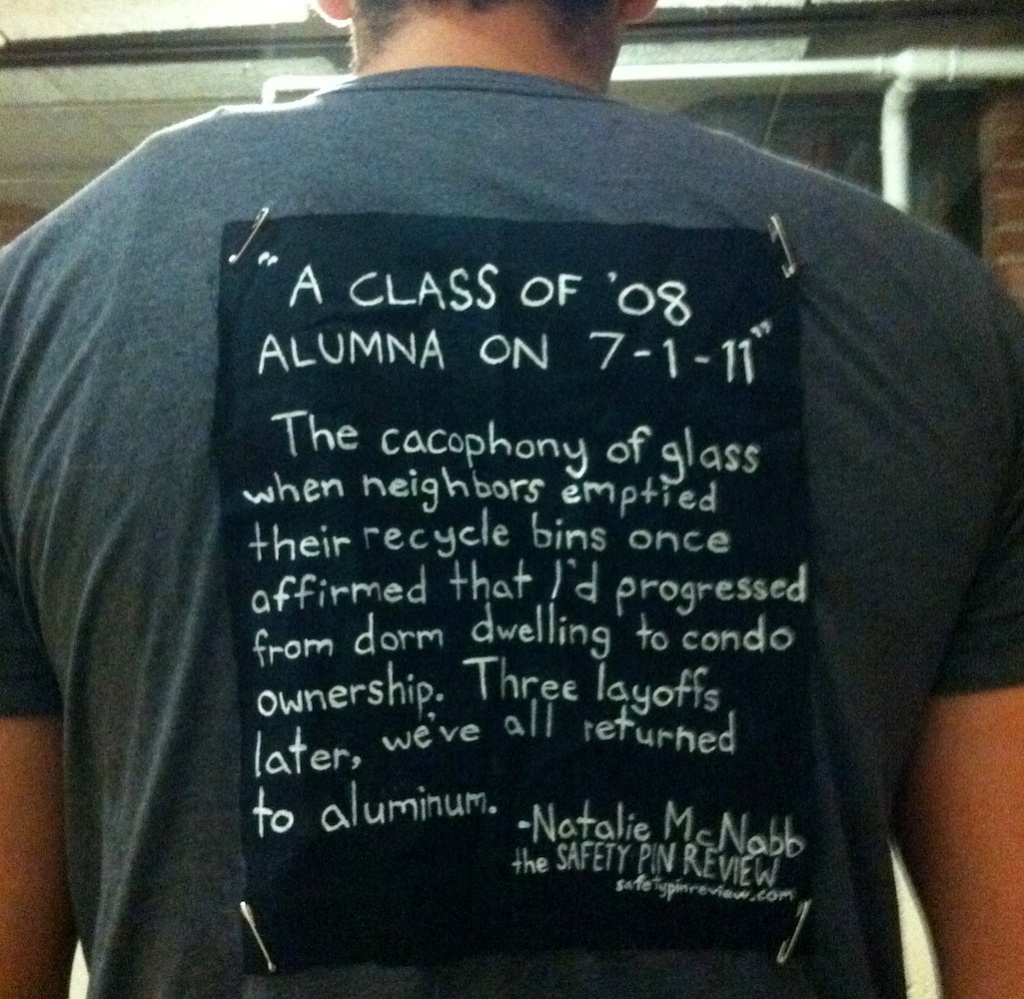 "A CLASS OF '08
ALUMNA ON 7-1-11"
The cacophony of glass
when neighbors emptied
their recycle bins once
affirmed that I'd progressed
from dorm dwelling to condo
ownership. Three layoffs
later, we've all returned
to aluminum.
-Natalie McNabb
the SAFETY PIN REVIEW
safetypinreview.com